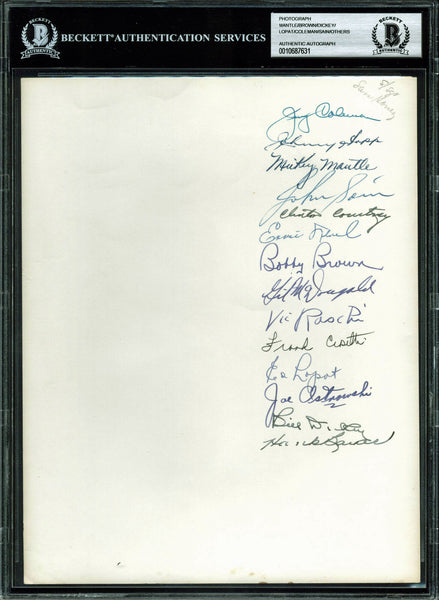 BECKETT
BECKETT AUTHENTICATION SERVICES
PHOTOGRAPH
MANTLE/BROWN/DICKEY/
LOPAT/COLEMAN/SAIN/OTHERS
AUTHENTIC AUTOGRAPH
0010687631
BECKETT
Jerry Coleman
Johnny Hopp
Mickey Mantle
John Sain
Clinton Courtney
Ernie Nevel
Bobby Brown
Gil McDougald
Vic Raschi
Frank Crosetti
Ed Lopat
Joe Ostrowski
Bill Dickey